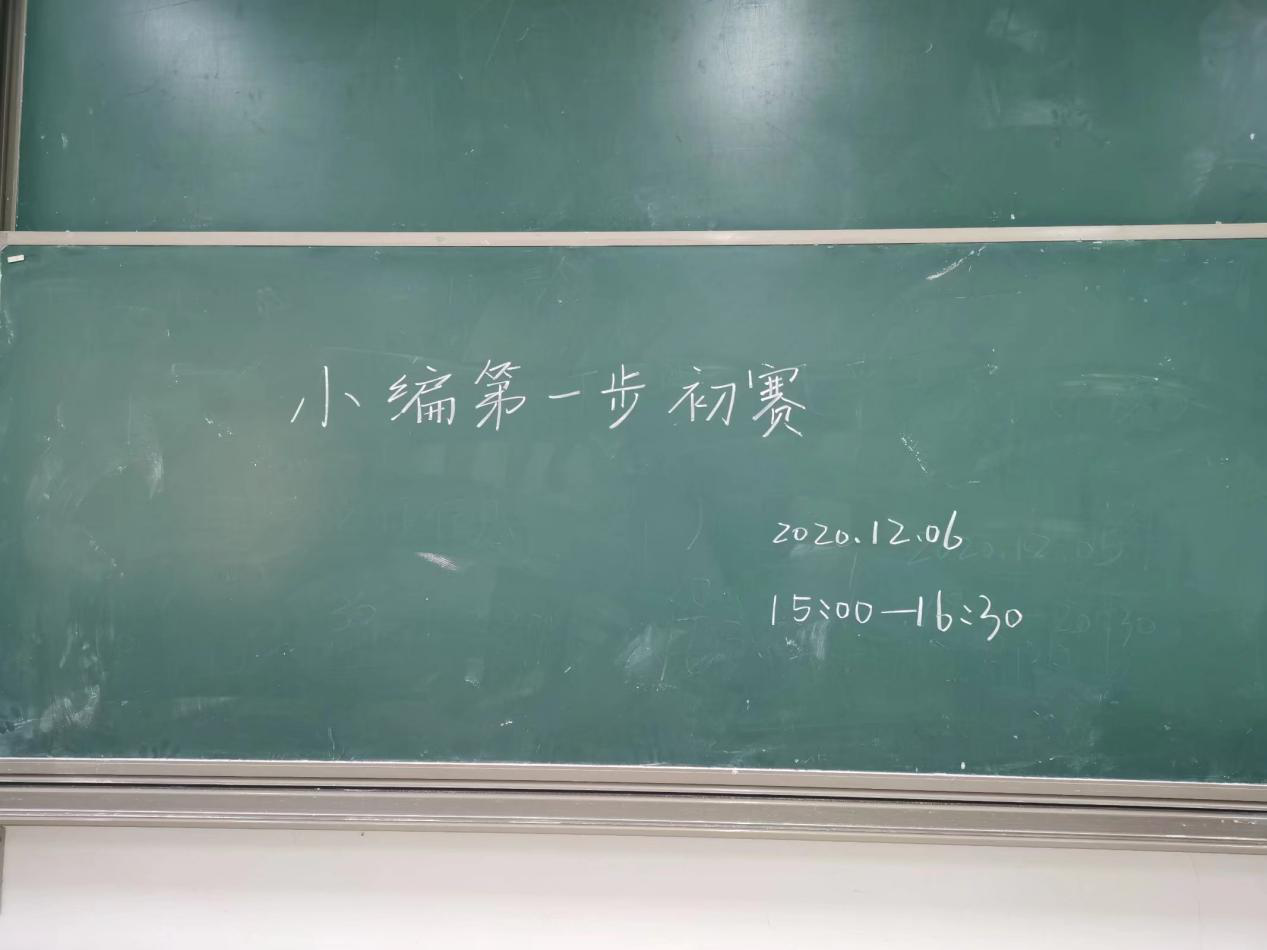 小编第一步初赛
2020.12.06
15:00—16:30